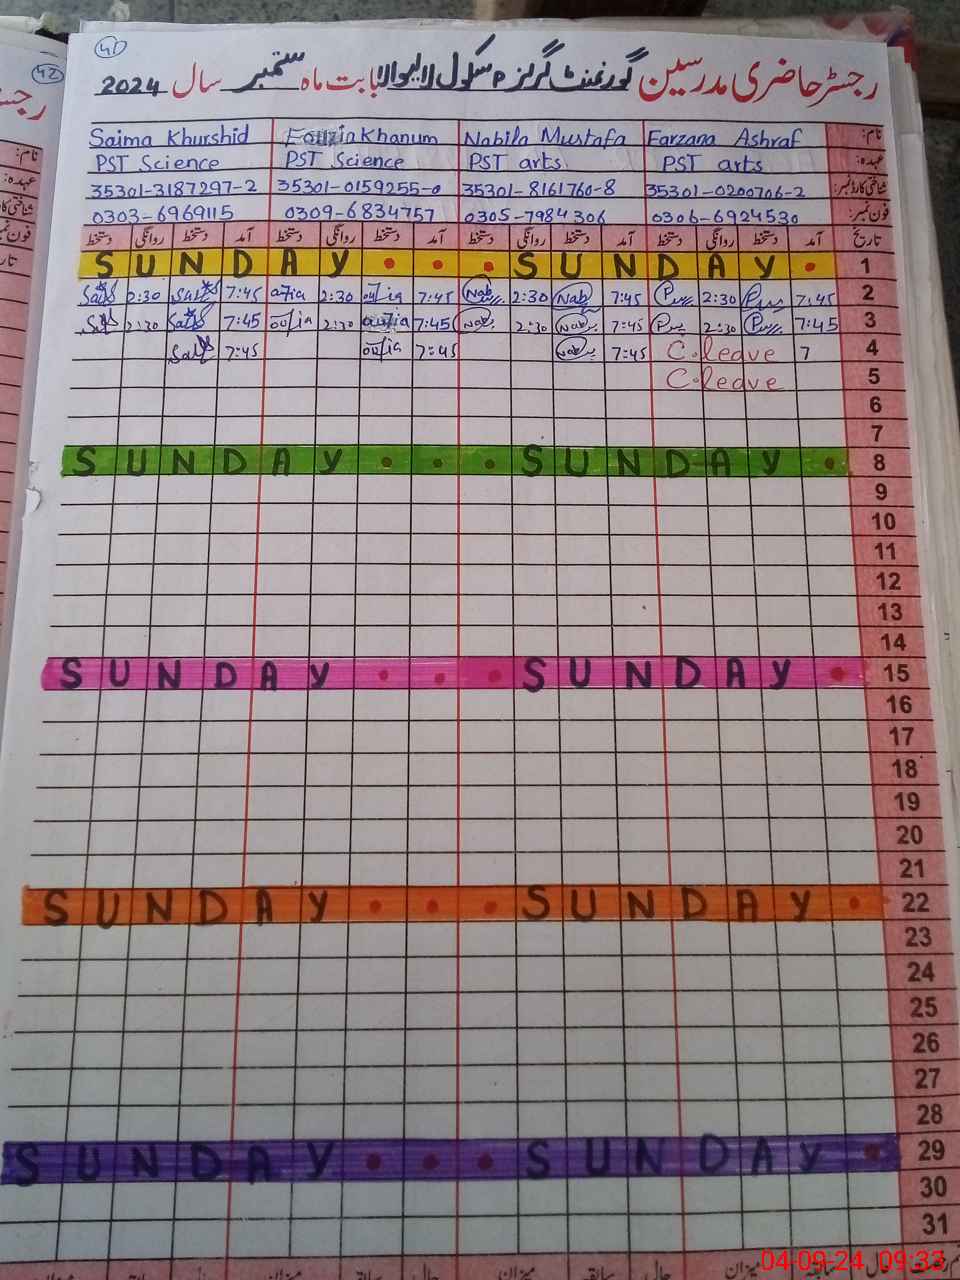 41
42
رجسٹر حاضری مدرسین گورنمنٹ گرلز P سکول لالیوالا بابت ماہ ستمبر سال 2024
نام: Saima Khurshid Fouzia Khanum Nabila Mustafa Farzana Ashraf
عہدہ: PST Science PST Science PST arts PST arts
شناختی کارڈ نمبر: 35301-3187297-2 35301-0159255-0 35301-8161760-8 35301-0200706-2
فون نمبر: 0303-6969115 0309-6834757 0305-7984306 0306-6924530
تاریخ آمد دستخط روانگی دستخط آمد دستخط روانگی دستخط آمد دستخط روانگی دستخط آمد دستخط روانگی دستخط
S U N D A Y . . . S U N D A Y . 1
2:30 7:45 2:30 7:45 Nab 2:30 Nab 7:45 2:30 7:45 2
2:30 7:45 2:30 7:45 Nab 2:30 Nab 7:45 2:30 7:45 3
7:45 7:45 Nab 7:45 C.leave 7 4
C.leave 5
6
7
S U N D A Y . . . S U N D A Y . 8
9
10
11
12
13
14
S U N D A Y . . . S U N D A Y . 15
16
17
18
19
20
21
S U N D A Y . . . S U N D A Y . 22
23
24
25
26
27
28
S U N D A Y . . . S U N D A Y . 29
30
31
04-09-24 09:33